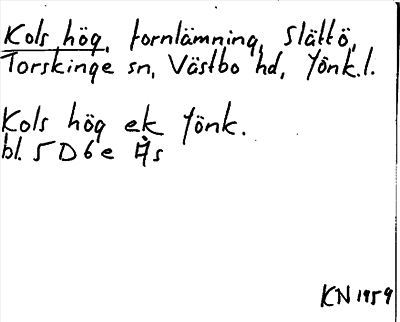 Kols hög, fornlämning, Slättö,
Torskinge sn, Västbo hd, Jönk.l.
Kols hög ek Jönk.
bl. 5D6e Ås
KN 1959